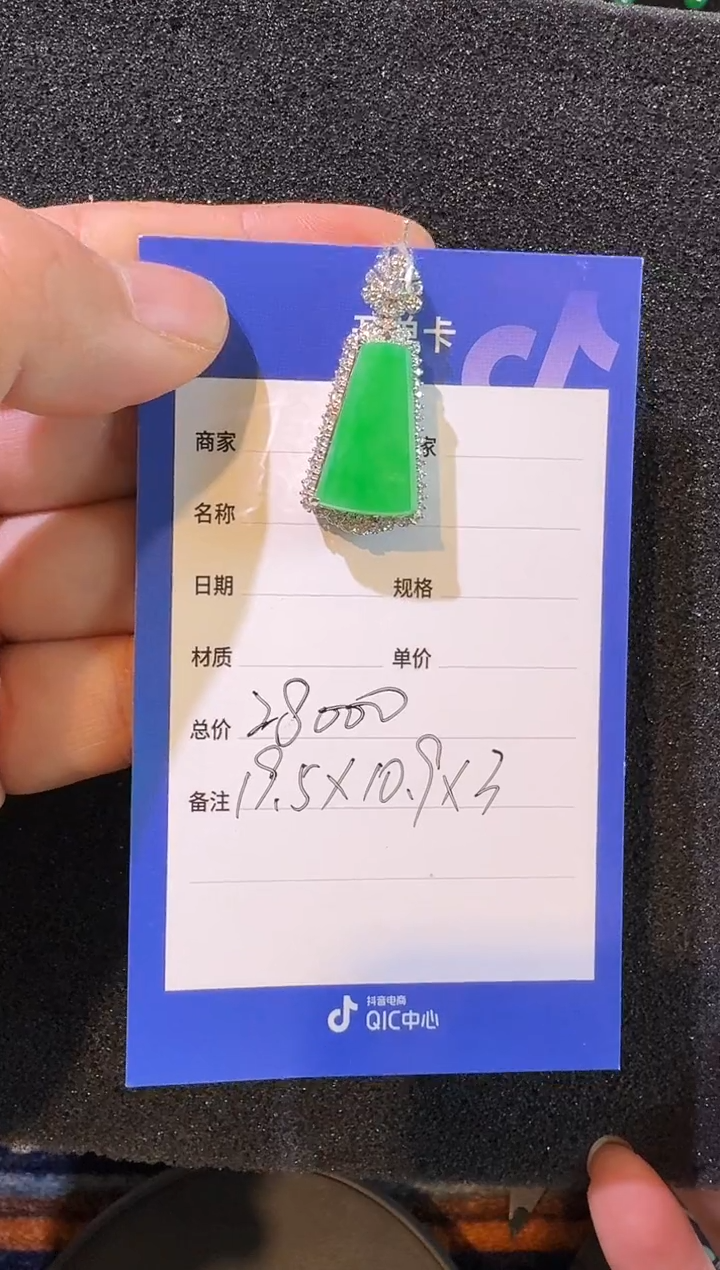 单卡
商家
家
名称
日期 规格
材质 单价
总价 28000
备注 19.5×10.9×3
抖音电商
QIC中心